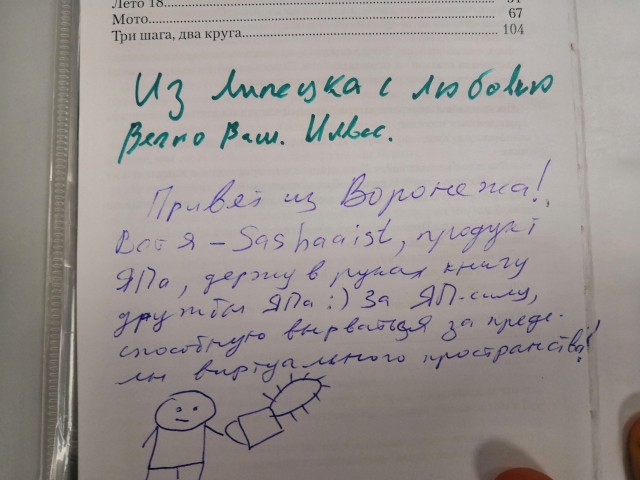 Лето 18
Мото 67
Три шага, два круга 104
Из Липецка с любовью
Вечно Ваш.
Привет из Воронежа!
Вот я – Sashaaist, продукт
ЯПа, держу в руках книгу
дружбы ЯПа :) За ЯП-силу,
способную вырваться за преде-
лы виртуального пространства!